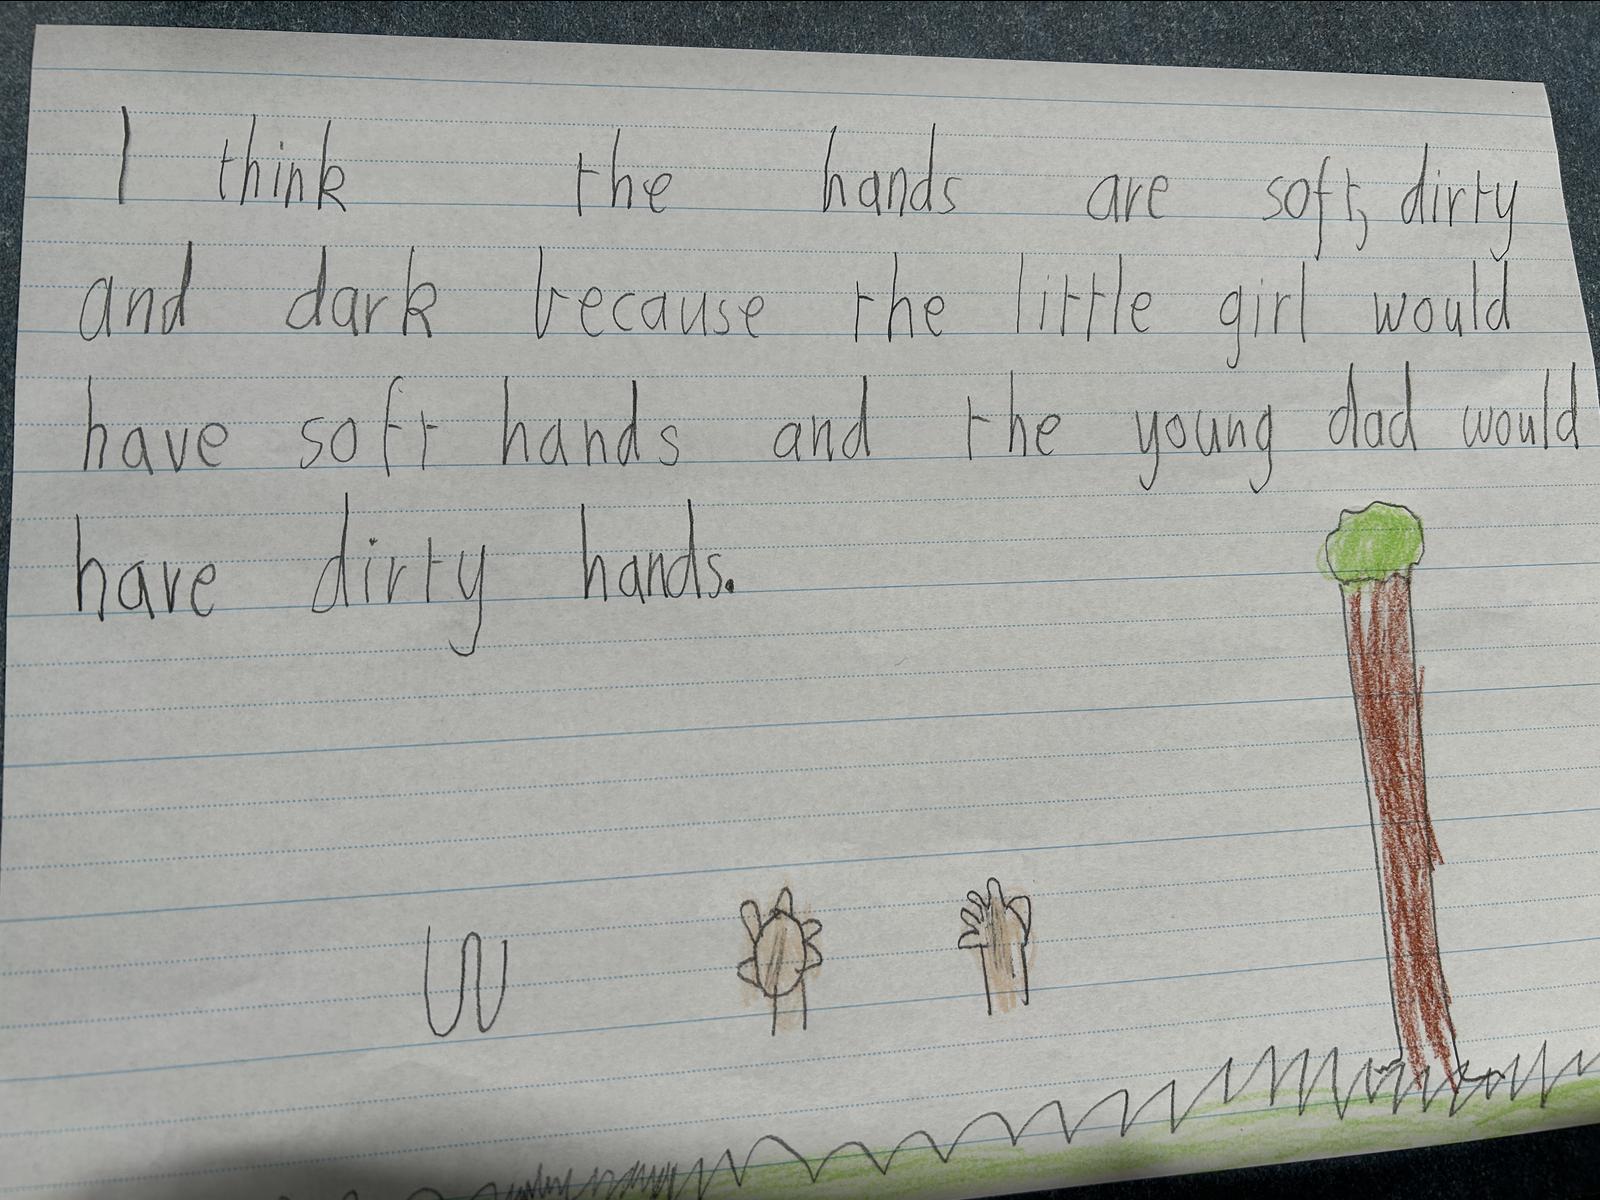 I think the hands are soft, dirty
and dark because the little girl would
have soft hands and the young dad would
have dirty hands.